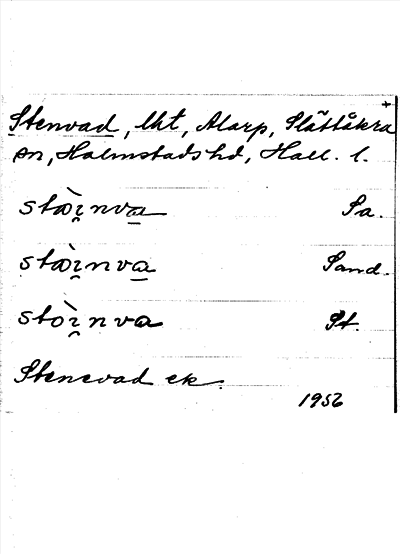 +
Stenvad, lht, Alarp, Slättåkra
sn, Halmstads hd, Hall. l.
stòi̯nva Sa.
stòi̯nva Sand.
stòi̯nva St.
Stenevad ek.
1956